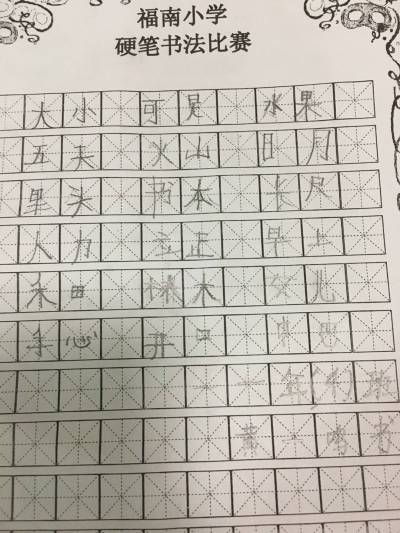 福南小学
硬笔书法比赛
大小 可足 水果
五天 火山 日月
里头 本 长尺
人力 立正 早上
禾田 林木 女儿
手心 开口
一年
黄 书